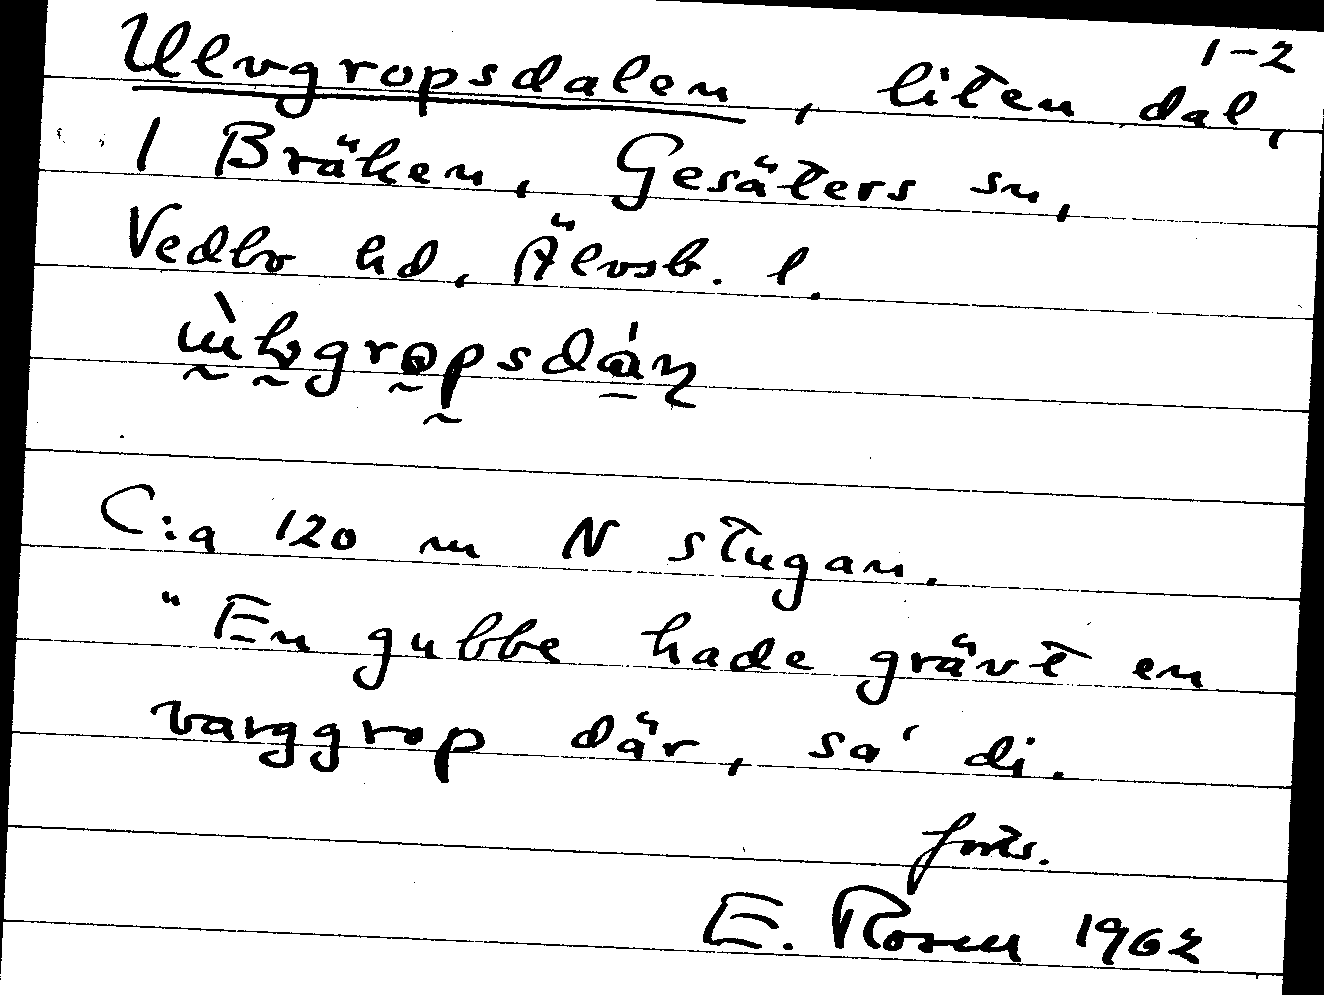 1-2
Ulvgropsdalen, liten dal,
I Bräken, Gesäters sn,
Vedbo hd, Älvsb. l.
C:a 120 m N stugan.
"En gubbe hade grävt en
varggrop där, sa' di.
forts.
E. Rosen 1962